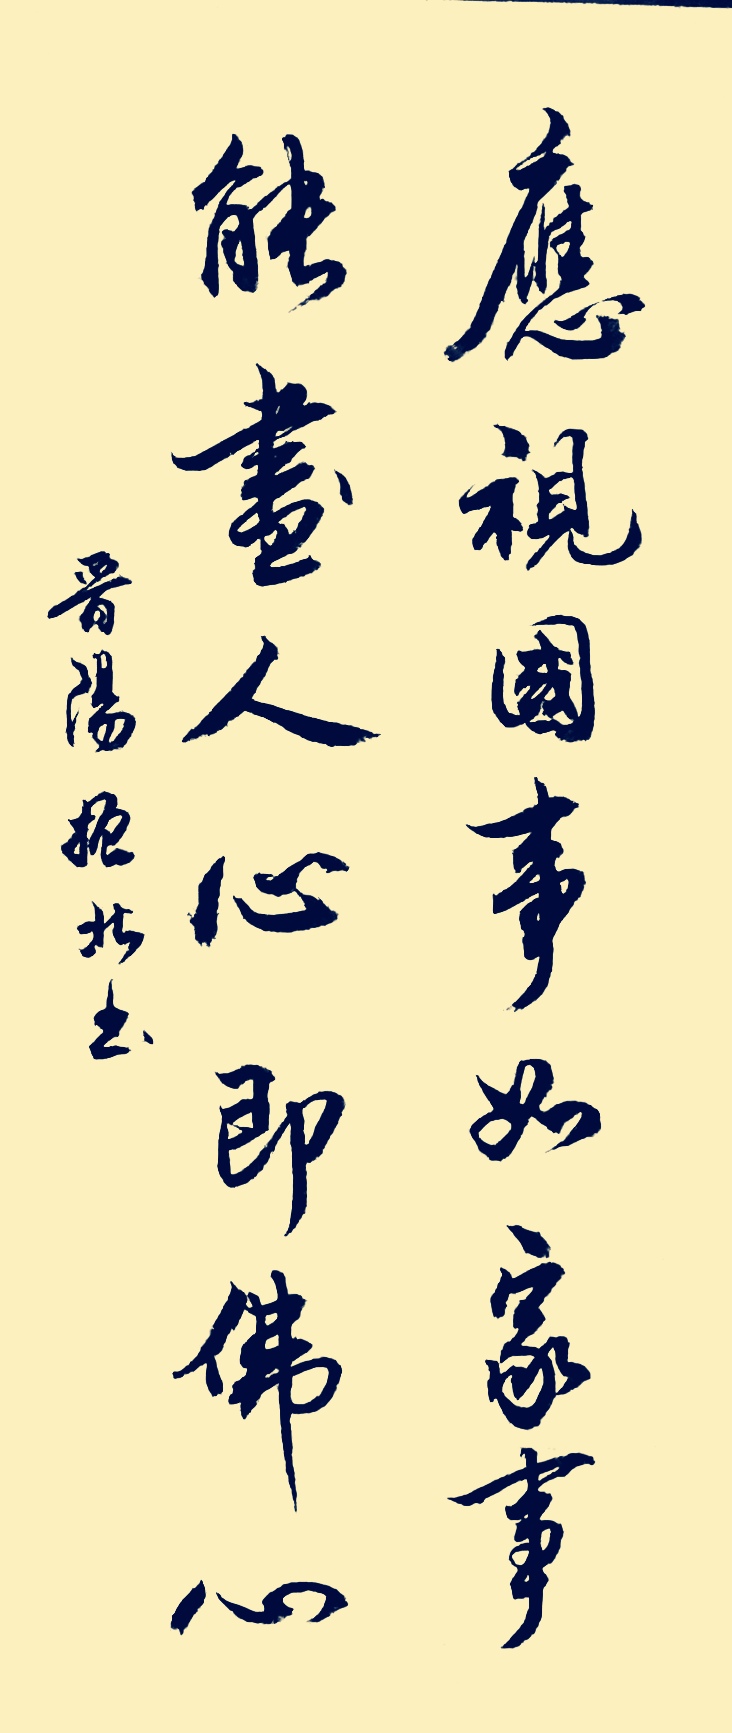 應視國事如家事
能盡人心即佛心
晋陽北书